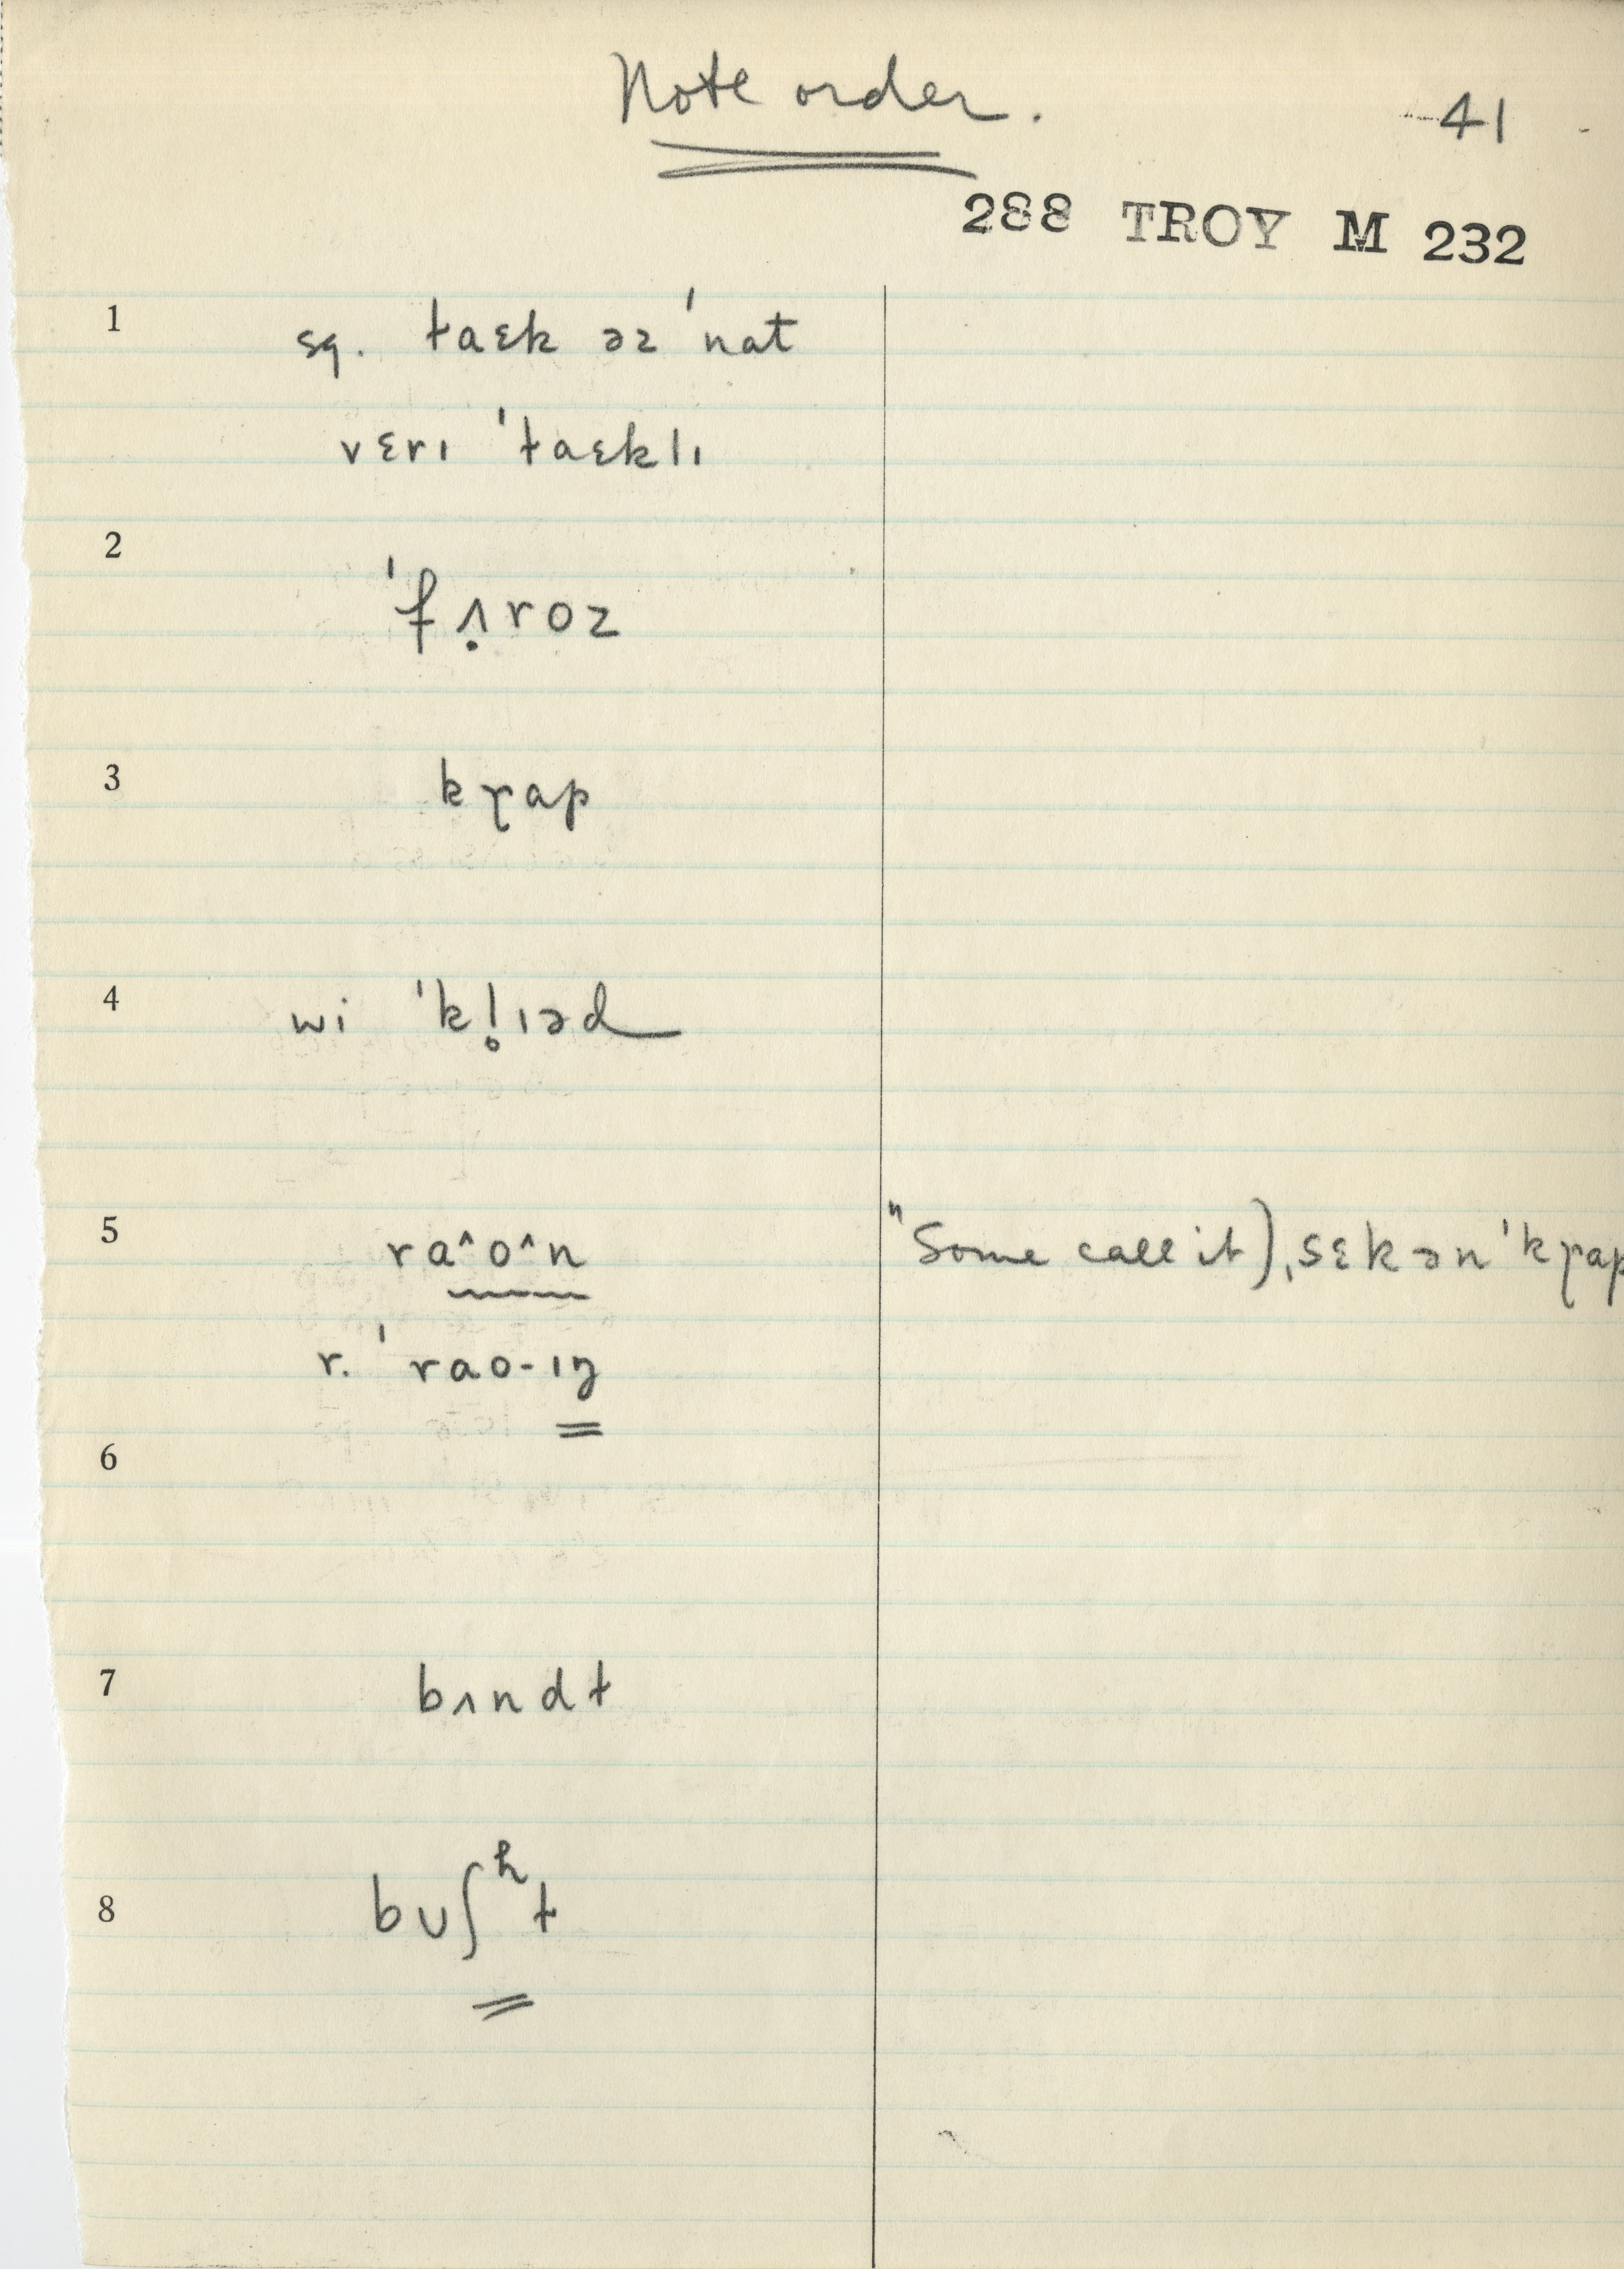 Note order.
41
288 TROY M 232
1 sq. taɛk əz ˈnat
vɛrɪ ˈtaɛklɪ
2 ˈfʌ̣roz
3 kɼap
4 wi ˈkl̥ɪəd
5 ra^o^n "Some call it), sɛkənˈkɼap
r. ˈrao-ɪŋ
6
7 bʌndt
8 bʊʃʰt